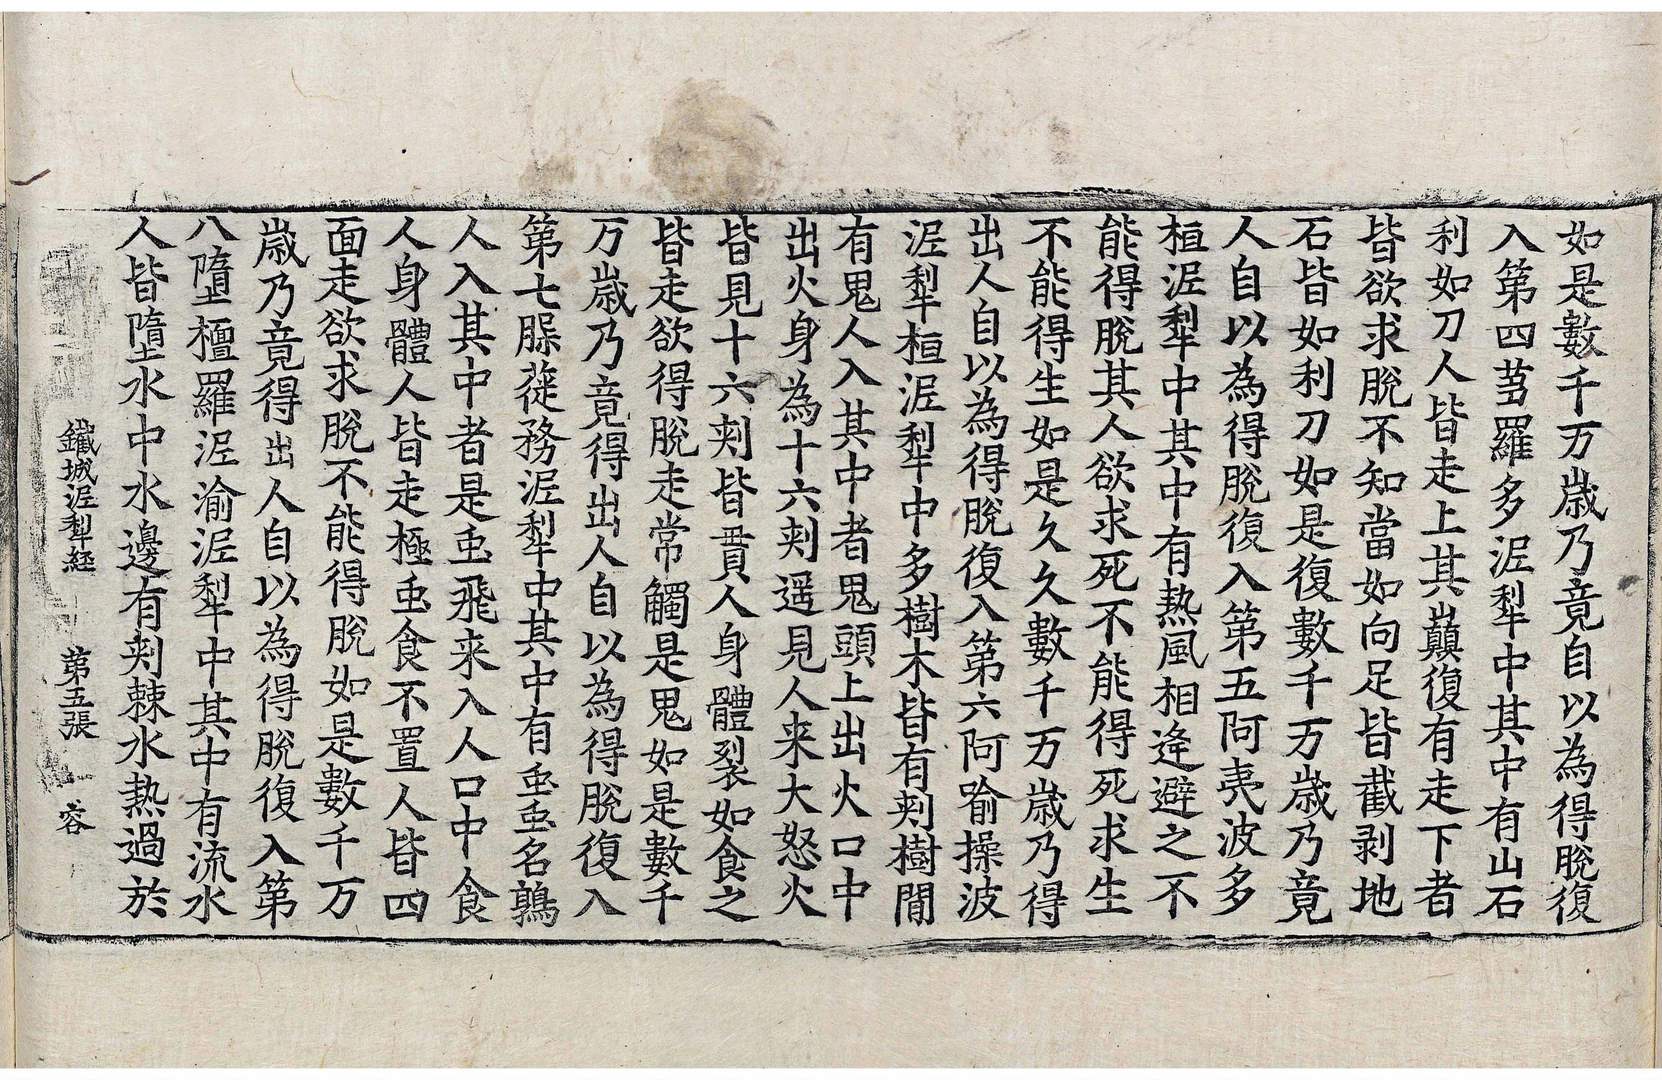 如是數千万歳乃竟自以為得脫復
入第四䓤羅多泥犁中其中有山石
利如刀人皆走上其巔復有走下者
皆欲求脫不知當如向足皆截剥地
石皆如利刀如是復數千万歳乃竟
人自以為得脫復入第五阿夷波多
桓泥犁中其中有熱風相逢避之不
能得脫其人欲求死不能得死求生
不能得生如是久久數千万歳乃得
出人自以為得脫復入第六阿喻操波
泥犁桓泥犁中多樹木皆有刾樹間
有鬼人入其中者鬼頭上出火口中
出火身為十六刾遥見人来大怒火
皆見十六刾皆貫人身體裂如食之
皆走欲得脫走常觸是鬼如是數千
万歳乃竟得出人自以為得脫復入
第七務泥犁中其中有䖝䖝名鶉
人入其中者是䖝飛来入人口中食
人身體人皆走極䖝食不置人皆四
面走欲求脫不能得脫如是數千万
歳乃竟得出人自以為得脫復入第
八墮檀羅泥渝泥犁中其中有流水
人皆墮水中水邊有刾棘水熱過於
鐵城泥犁經 第五張 容